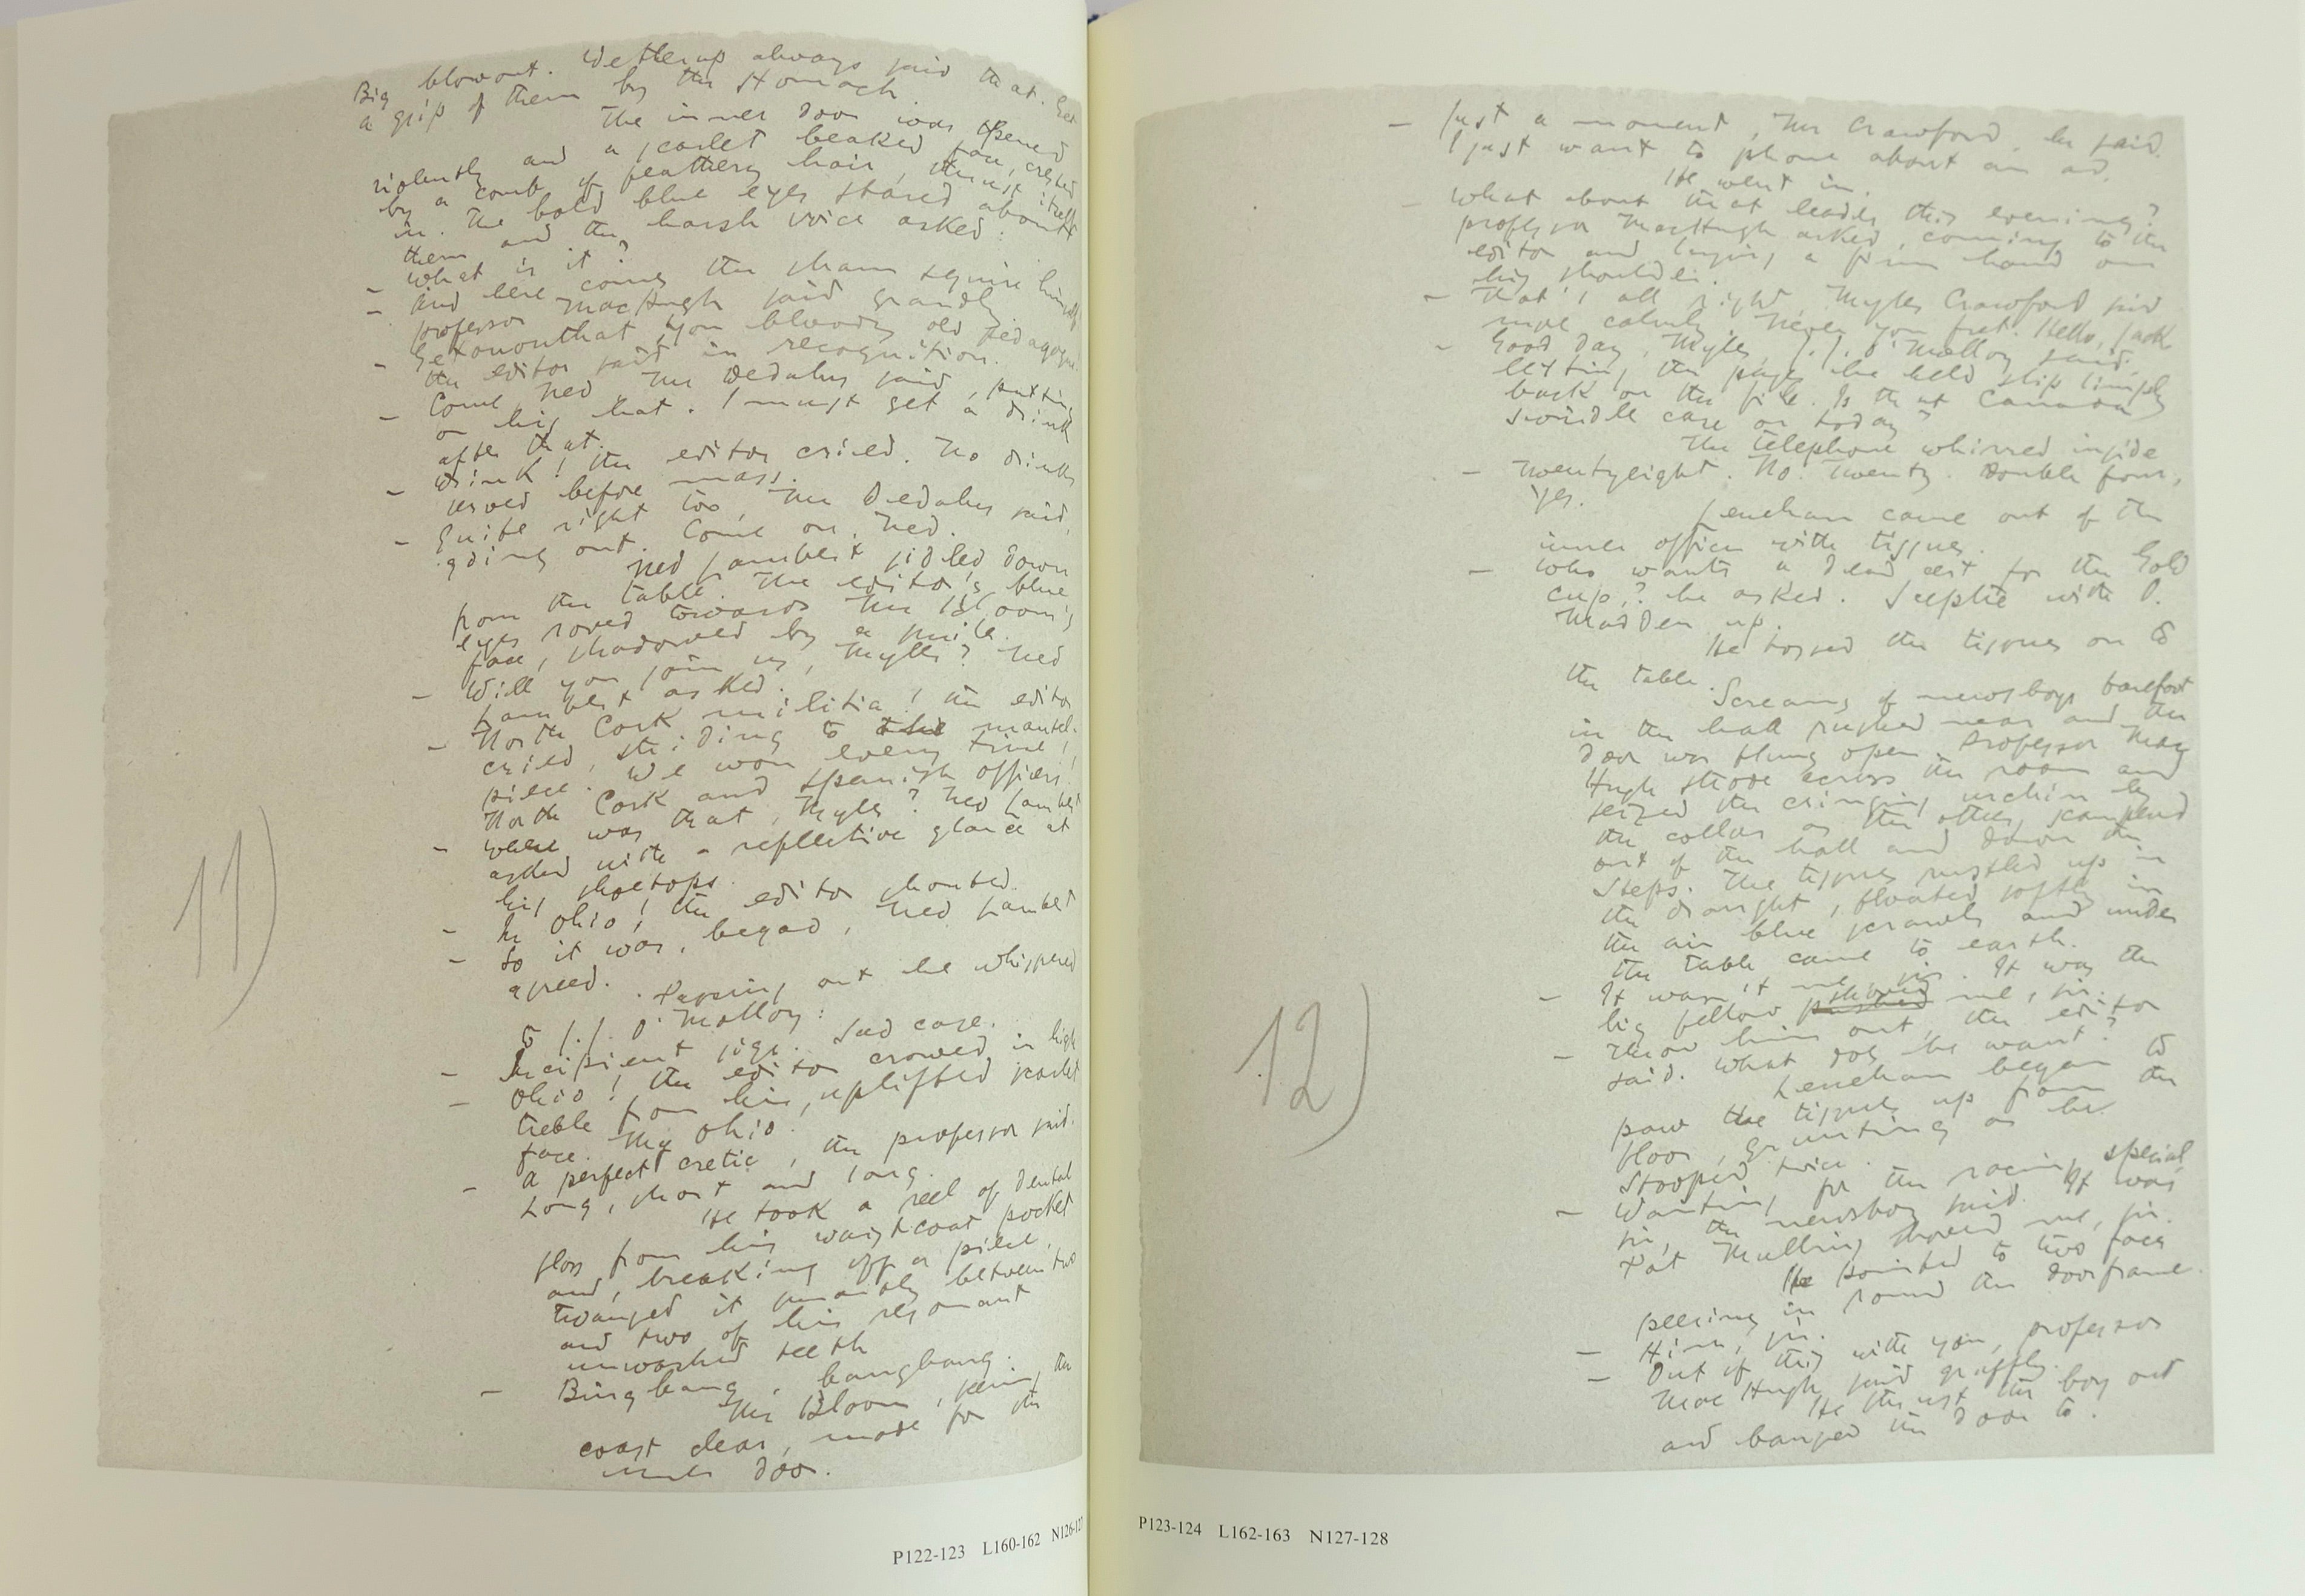 Big blowout. Wetherup always said that. Get
a grip of them by the stomach.
The inner door was opened
violently and a scarlet beaked face, crested
by a comb of feathery hair, thrust itself
in. The bold blue eyes stared about
them and the harsh voice asked:
– What is it?
– And here comes the sham squire himself
professor MacHugh said grandly
– Getonouthat, you bloody old pedagogue
the editor said in recognition.
– Come, Ned, Mr Dedalus said, putting
on his hat. I must get a drink
after that.
– Drink! the editor cried. No drinks
served before mass.
– Quite right too, Mr Dedalus said,
going out. Come on, Ned.
Ned Lambert sidled down
from the table. The editor's blue
eyes roved towards Mr Bloom's
face, shadowed by a smile.
– Will you join us, Myles? Ned
Lambert asked.
– North Cork militia! the editor
cried, striding to the mantel-
piece. We won every time!
North Cork and Spanish officers!
– Where was that, Myles? Ned Lambert
asked with a reflective glance at
his shoetops.
– In Ohio! the editor shouted.
– So it was, begad, Ned Lambert
agreed.
Passing out he whispered
to J. J. O'Molloy:
– Incipient jigs. Sad case.
– Ohio! the editor crowed in high
treble from his uplifted scarlet
face. My Ohio.
– A perfect cretic, the professor said.
Long, short and long.
He took a reel of dental
floss from his waistcoat pocket
and, breaking off a piece,
twanged it smartly between two
and two of his resonant
unwashed teeth
– Bingbang, bangbang.
Mr Bloom, seeing the
coast clear, made for the
inner door.
11)
P122-123 L160-162 N126-127
– Just a moment, Mr Crawford, he said.
I just want to phone about an ad.
He went in.
– What about that leader this evening?
professor MacHugh asked, coming to the
editor and laying a firm hand on
his shoulder.
– That'll all right, Myles Crawford said
more calmly. Never you fret. Hello, Jack
– Good day, Myles, J. J. O'Molloy said,
letting the pages he held slip limply
back on the file. Is that Canada
swindle case on today?
The telephone whirred inside
– Twentyeight. No. Twenty. Double four,
Yes.
Lenehan came out of the
inner office with tissues.
– Who wants a dead cert for the Gold
cup? he asked. Sceptre with O.
Madden up.
He tossed the tissues on to
the table.
Screams of newsboys barefoot
in the hall rushed near and the
door was flung open. Professor Mac
Hugh strode across the room and
seized the cringing urchin by
the collar as the others scampered
out of the hall and down the
steps. The tissues rustled up in
the draught, floated softly in
the air blue scrawls and under
the table came to earth.
– It wasn't me, sir. It was the
big fellow pushed shoved me, sir.
– Throw him out, the editor
said. What does he want?
Lenehan began to
paw the tissues up from the
floor, grunting as he
stooped twice.
– Waiting for the racing special,
sir, the newsboy said. It was
Pat Mullins shoved me, sir.
He pointed to two faces
peering in round the doorframe.
– Him, sir.
– Out of this with you, professor
MacHugh said gruffly.
He thrust the boy out
and banged the door to.
12)
P123-124 L162-163 N127-128